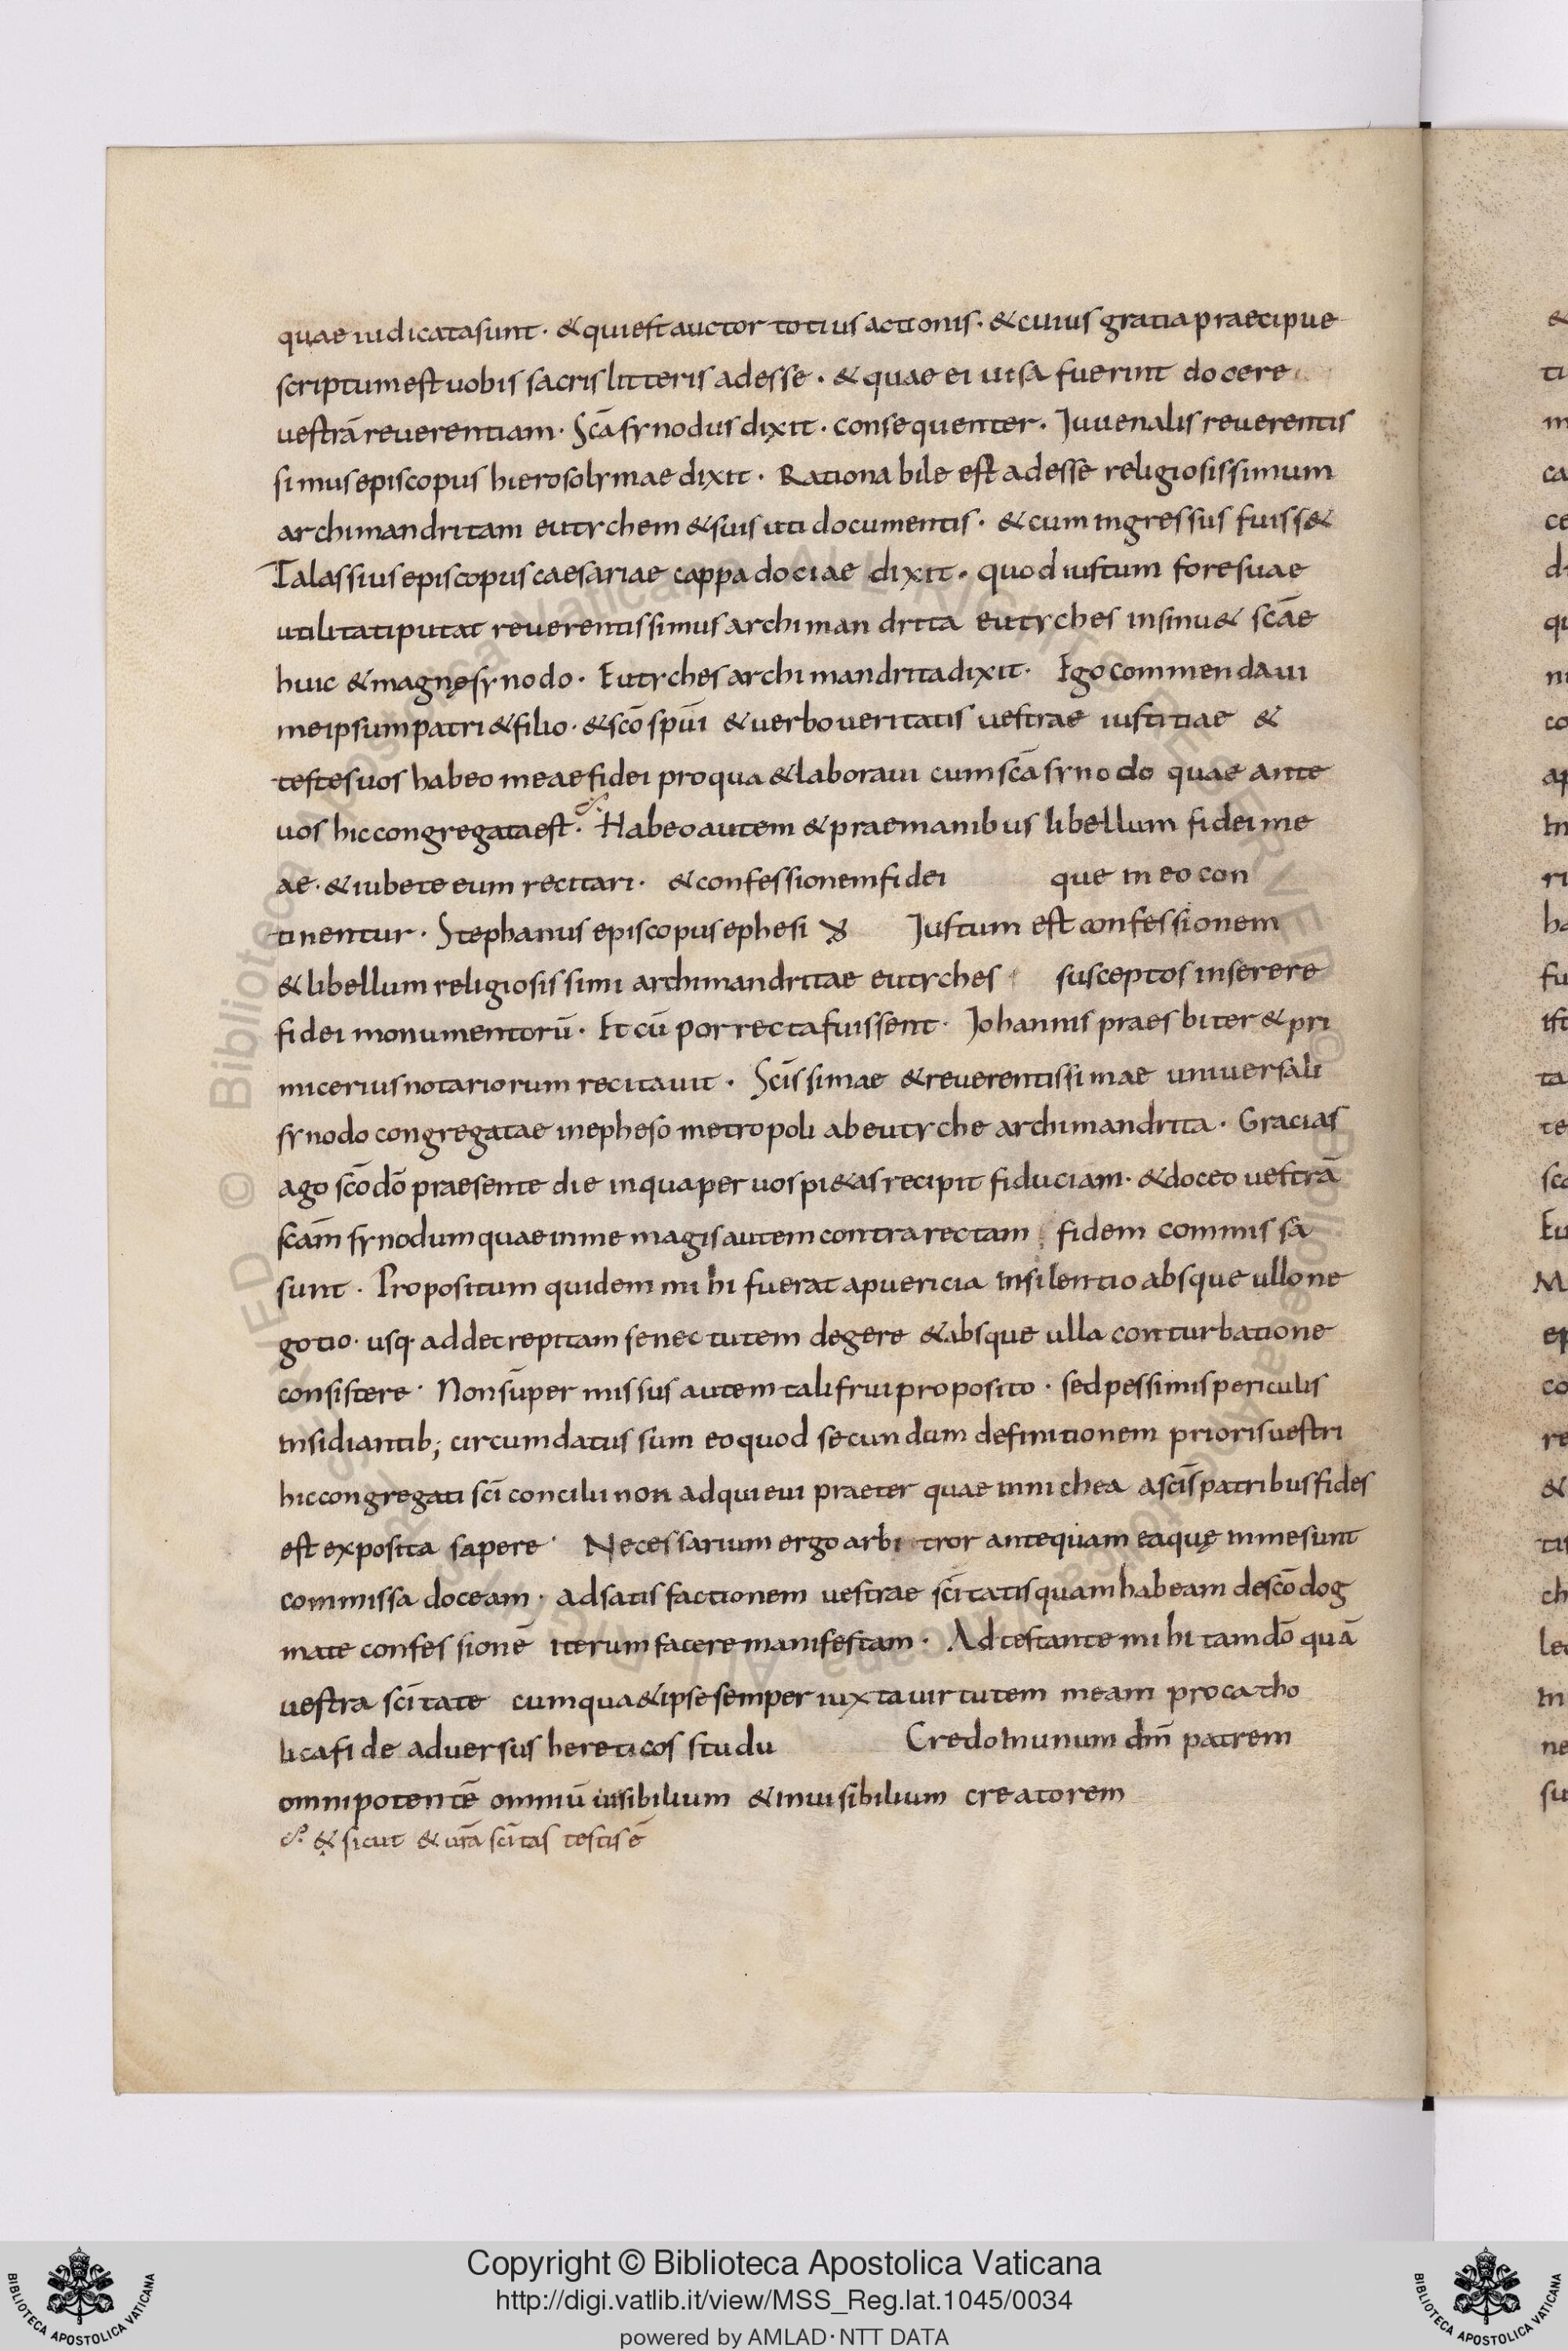 quae iudicata sunt · & qui est auctor totius actionis · & cuius gratia praecipue
scriptum est uobis sacris litteris adesse · & quae ei uisa fuerint docere
uestrā reuerentiam · Scā synodus dixit · consequenter · Iuuenalis reuerentis
simus episcopus hierosolymae dixit · Rationabile est adesse religiosissimum
archimandritam eutychem & suis uti documentis · & cum ingressus fuiss&
Talassius episcopus caesariae cappadociae dixit · quod iustum fore suae
utilitati putat reuerentissimus archimandrita eutyches insinu& scāe
huic & magnę synodo · Eutyches archimandrita dixit · Ego commendaui
me ipsum patri & filio · & scō spūi & uerbo ueritatis uestrae iustitiae &
testes uos habeo meae fidei pro qua & laboraui cum scā synodo quae ante
uos hic congregata est · Habeo autem & prae manibus libellum fidei me
ae · & iubete eum recitari · & confessionem fidei que in eo con
tinentur · Stephanus episcopus ephesi Iustum est confessionem
& libellum religiosissimi archimandritae eutyches susceptos inserere
fidei monumentorū · Et cū porrecta fuissent · Iohannis praesbiter & pri
micerius notariorum recitauit · Scīssimae & reuerentissimae uniuersali
synodo congregatae in epheso metropoli ab eutyche archimandrita · Gracias
ago scō dō praesente die in qua per uos pi&as recipit fiduciam · & doceo uestrā
scām synodum quae in me magis autem contra rectam fidem commissa
sunt · Propositum quidem mihi fuerat a puericia in silentio absque ullo ne
gotio · usq· ad decrepitam senectutem degere & absque ulla conturbatione
consistere · Non sūpermissus autem tali frui proposito · sed pessimis periculis
insidiantib; circumdatus sum eo quod secundum definitionem prioris uestri
hic congregati scī concilii non adquieui praeter quae in nichea a scīs patribus fides
est exposita sapere · Necessarium ergo arbitror antequam ea quę in me sunt
commissa doceam · ad satisfactionem uestrae scītatis quam habeam de scō dog
mate confessionē iterum facere manifestam · Adtestante mihi tam dō quā
uestra scītate cum qua & ipse semper iuxta uirtutem meam pro catho
lica fide aduersus hereticos studu Credo in unum dm̄ patrem
omnipotentē omniū uisibilium & inuisibilium creatorem
& sicut & ur̄a scītas testis ē
Copyright © Biblioteca Apostolica Vaticana
http://digi.vatlib.it/view/MSS_Reg.lat.1045/0034
powered by AMLAD·NTT DATA
BIBLIOTECA APOSTOLICA VATICANA
BIBLIOTECA APOSTOLICA VATICANA